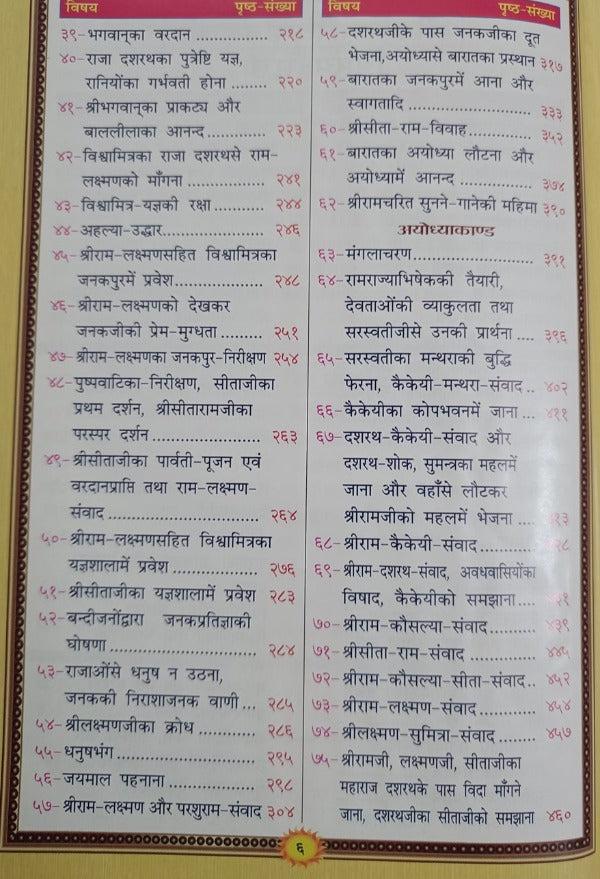 विषय पृष्ठ-संख्या
३९-भगवान्‌का वरदान ................ २१८
४०-राजा दशरथका पुत्रेष्टि यज्ञ,
रानियोंका गर्भवती होना ........ २२०
४१-श्रीभगवान्‌का प्राकट्य और
बाललीलाका आनन्द ............. २२३
४२-विश्वामित्रका राजा दशरथसे राम-
लक्ष्मणको माँगना ................. २४१
४३-विश्वामित्र-यज्ञकी रक्षा ......... २४४
४४-अहल्या-उद्धार..................... २४६
४५-श्रीराम-लक्ष्मणसहित विश्वामित्रका
जनकपुरमें प्रवेश................... २४८
४६-श्रीराम-लक्ष्मणको देखकर
जनकजीकी प्रेम-मुग्धता ......... २५१
४७-श्रीराम-लक्ष्मणका जनकपुर-निरीक्षण २५४
४८-पुष्पवाटिका-निरीक्षण, सीताजीका
प्रथम दर्शन, श्रीसीतारामजीका
परस्पर दर्शन ........................ २६३
४९-श्रीसीताजीका पार्वती-पूजन एवं
वरदानप्राप्ति तथा राम-लक्ष्मण-
संवाद .................................. २६४
५०-श्रीराम-लक्ष्मणसहित विश्वामित्रका
यज्ञशालामें प्रवेश .................. २७६
५१-श्रीसीताजीका यज्ञशालामें प्रवेश २८३
५२-बन्दीजनोंद्वारा जनकप्रतिज्ञाकी
घोषणा ................................ २८४
५३-राजाओंसे धनुष न उठना,
जनककी निराशाजनक वाणी ... २८५
५४-श्रीलक्ष्मणजीका क्रोध .......... २८६
५५-धनुषभंग ............................. २९५
५६-जयमाल पहनाना .................. २९८
५७-श्रीराम-लक्ष्मण और परशुराम-संवाद ३०४
विषय पृष्ठ-संख्या
५८-दशरथजीके पास जनकजीका दूत
भेजना,अयोध्यासे बारातका प्रस्थान ३१७
५९-बारातका जनकपुरमें आना और
स्वागतादि ............................ ३३३
६०-श्रीसीता-राम-विवाह............. ३५२
६१-बारातका अयोध्या लौटना और
अयोध्यामें आनन्द ................. ३७४
६२-श्रीरामचरित सुनने-गानेकी महिमा ३९०
अयोध्याकाण्ड
६३-मंगलाचरण.......................... ३९१
६४-रामराज्याभिषेककी तैयारी,
देवताओंकी व्याकुलता तथा
सरस्वतीजीसे उनकी प्रार्थना .... ३९६
६५-सरस्वतीका मन्थराकी बुद्धि
फेरना, कैकेयी-मन्थरा-संवाद .. ४०२
६६-कैकेयीका कोपभवनमें जाना ... ४११
६७-दशरथ-कैकेयी-संवाद और
दशरथ-शोक, सुमन्त्रका महलमें
जाना और वहाँसे लौटकर
श्रीरामजीको महलमें भेजना ....
६८-श्रीराम-कैकेयी-संवाद...........
६९-श्रीराम-दशरथ-संवाद, अवधवासियोंका
विषाद, कैकेयीको समझाना....
७०-श्रीराम-कौसल्या-संवाद......... ४३९
७१-श्रीसीता-राम-संवाद ............. ४४५
७२-श्रीराम-कौसल्या-सीता-संवाद.. ४५२
७३-श्रीराम-लक्ष्मण-संवाद........... ४५४
७४-श्रीलक्ष्मण-सुमित्रा-संवाद ....... ४५७
७५-श्रीरामजी, लक्ष्मणजी, सीताजीका
महाराज दशरथके पास विदा माँगने
जाना, दशरथजीका सीताजीको समझाना ४६०
६